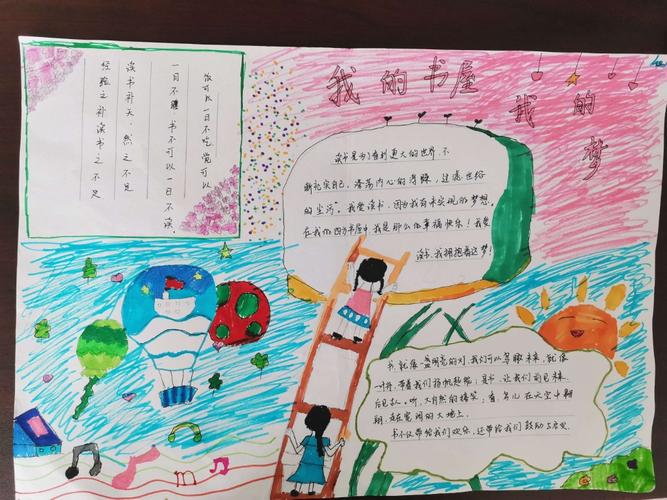 我的书屋
我的梦
饭可以一日不吃，觉可以
一日不睡，书不可以一日不读。
读书补天，然之不足
经验之补读书之不足
读书是为了看到更大的世界，不
断充实自己，涤荡内心的浮躁，过滤世俗
的尘污”。我爱读书，因为我有未实现的梦想。
在我们四方书屋中，我是那么的幸福快乐！我爱
读书，我拥抱着这梦！
书，就像一盏明亮的灯，我们可以驾驭未来，就像
一叶舟，带着我们扬帆起航；是书，让我们前见未来，
后见古人。听，大自然的微笑；看，鸟儿在天空中翱
翔，走在宽阔的大地上。
书不仅带给我们欢乐，还带给我们鼓励与启发。